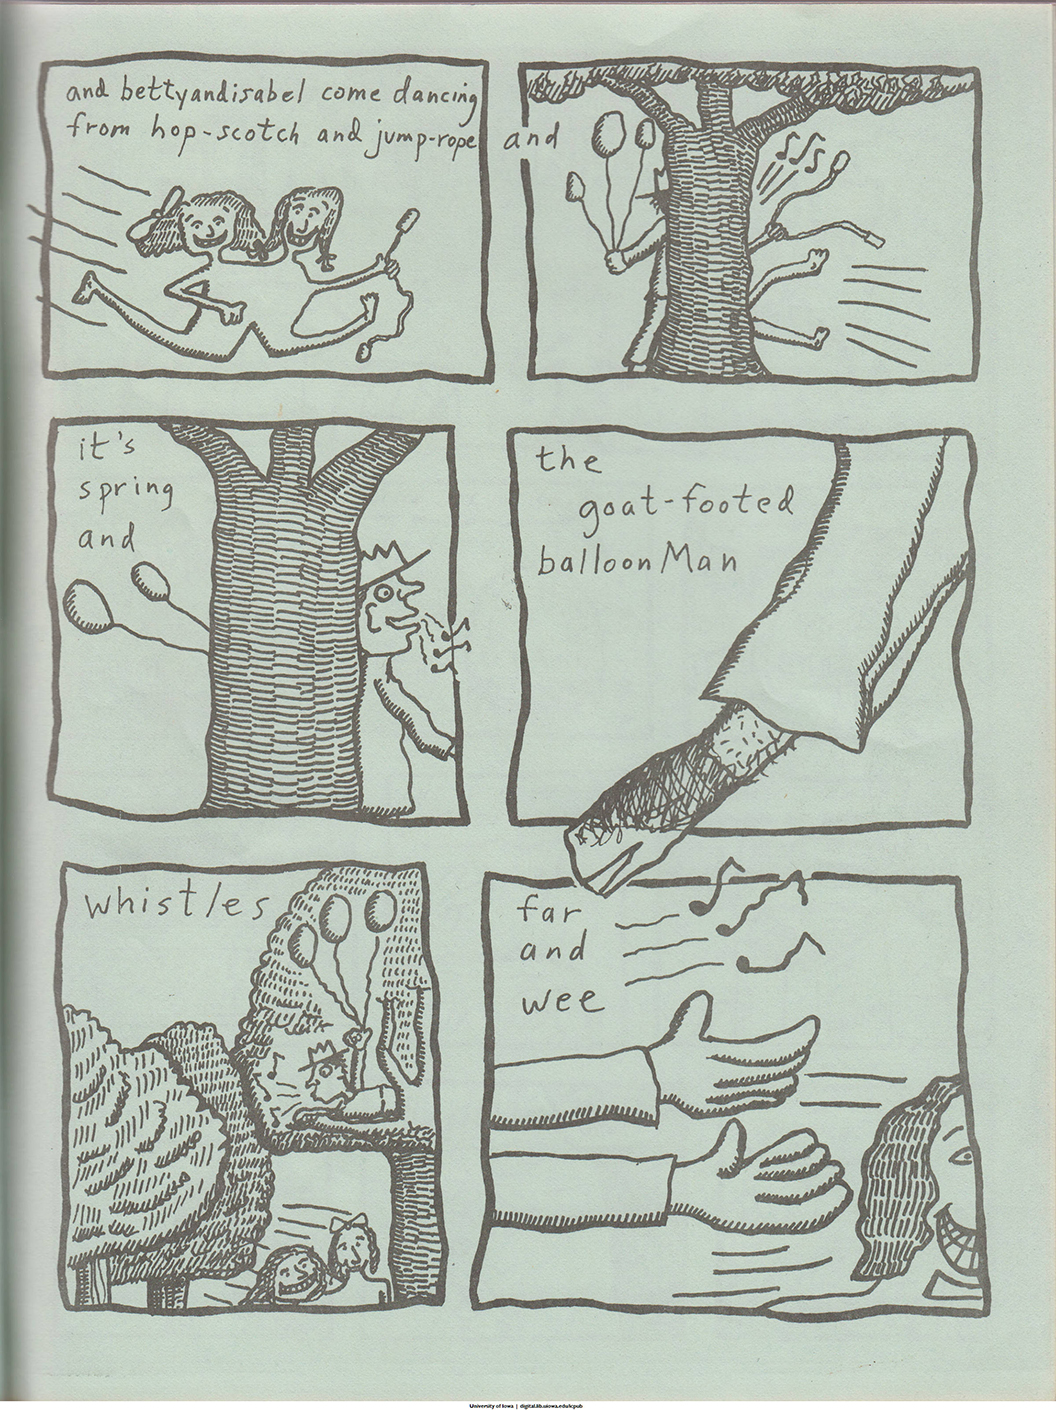 and bettyandisabel come dancing
from hop-scotch and jump-rope and
it's
spring
and
the
goat-footed
balloonMan
whistles
far
and
wee
University of Iowa | digital.lib.uiowa.edu/icpub